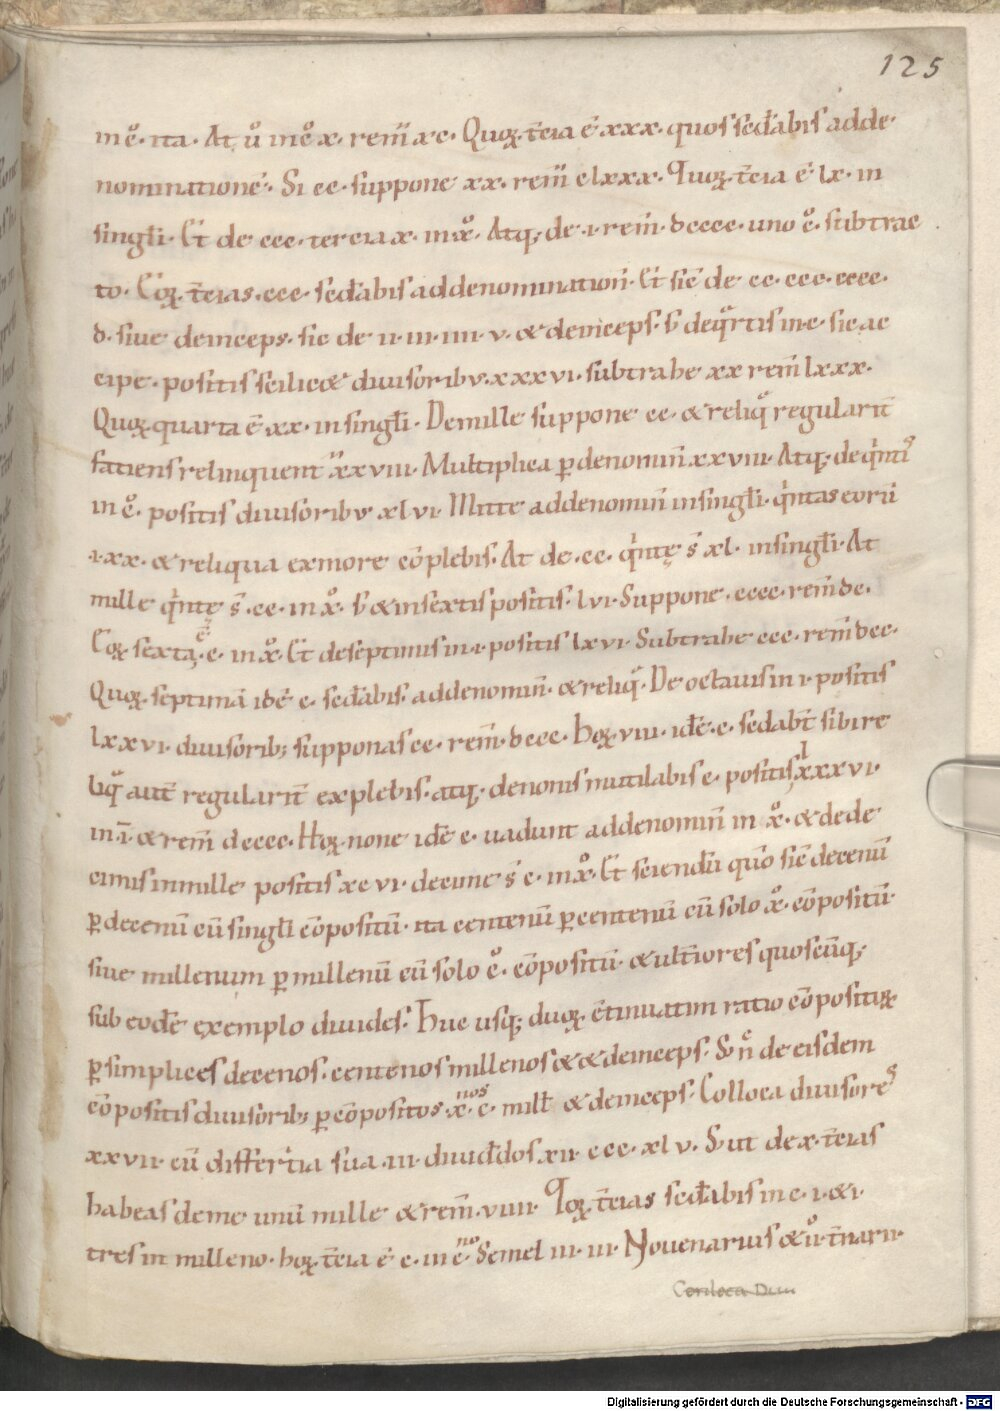 125
in c̊. ita. At ů in c̊ x. rem̄ xc. Quoꝝ t̄cia ē xxx. quos sed̄abis adde
nominationē. Si cc. suppone xx. rem̄ clxxx. Quoꝝ t̄cia ē lx. in
singl̄i. Et de ccc. tercia x. in x̊. Atq; de .i. rem̄. dcccc. uno c̊. subtrac
to. Eoꝝ t̄cias .ccc. sed̄abis ad denomination̄. Et sic̄ de cc. ccc. cccc.
d. siue deinceps. sic de ii. iii. iiii. v. & deinceps. s̄ de q̊rtis in c. sic ac
cipe. positis scilic& diuisoribus. xxxvi. subtrahe xx rem̄ lxxx.
Quoꝝ quarta ē xx. in singl̄i. De mille suppone cc. & reliq̊ regularit̄
fatiens relinquent̄ xxviii. Multiplica ꝑ denomin̄ xxviii. Atq; de q̊ntis
in c̊. positis diuisoribus xlvi. Mitte ad denomin̄ in singl̄i. q̊ntas eorū
.i. xx. & reliqua ex more cōplebis. At de .cc. q̊ntę s̄ xl. in singl̄i. At
mille q̊ntę s̄ .cc. in x̊. s̄ & in sextis positis. lvi. Suppone. cccc. rem̄ dc.
Eoꝝ sexta ē. c. in x̊. Et de septimis in .i. positis lxvi. Subtrahe ccc. rem̄ dcc.
Quoꝝ septimā idē c. sed̄abis. ad denomin̄. & reliq̊. De octauis in i. positis
lxxvi. diuisorib; supponas cc. rem̄. dccc. hoꝝ viii. idē. c. sedab̄t sibi re
liq̊ aut̄ regularit̄ explebis. atq; de nonis mutilabis c. positis lxxxvi.
in .i. & rem̄ dcccc. Hoꝝ none idē c. uadunt ad denomin̄ in x̊. & de de
cimis in mille positis xcvi. decime s̄ c. in x̊. Et sciendū quō sic̄ decenū
ꝑ decenū cū singl̄i cōpositū. ita centenū ꝑ centenū cū solo x̊. cōpositū.
siue millenum ꝑ millenū cū solo c̊. cōpositū. & ult̄iores quoscūq;
sub eodē exemplo diuides. Huc usq; duoꝝ c̄tinuatim ratio cōpositoꝝ
ꝑ simplices decenos. centenos millenos & & deinceps. S; n̊c de eisdem
cōpositis diuisorib; ꝑ cōpositos .x. c.nos mill̄ & deinceps. Colloca diuisores
xxvii cū differ̄tia sua .iii. diuid̄dos xii ccc. xlv. S; ut de x. t̄cias
habeas deme unū mille & rem̄. viiii. Qoꝝ t̄cias sed̄abis in c. i. & i.
tres in milleno. hoꝝ t̄cia ē c. in c.no Semel iii. iii. Nouenarius & ů t̄narii.
Conloca Diui
Digitalisierung gefördert durch die Deutsche Forschungsgemeinschaft - DFG